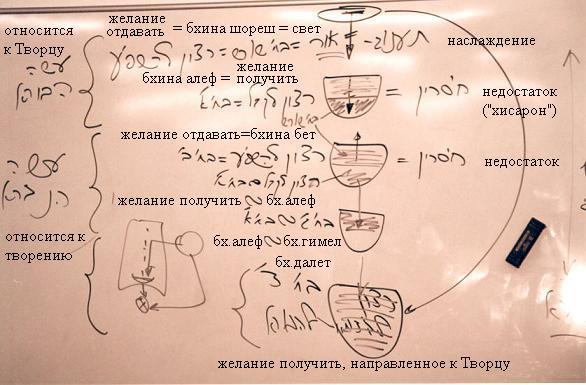 желание
отдавать = бхина шореш = свет
относится
к Творцу
תענוג = אור = בח' שורש = רצון להשפיע
наслаждение
желание
бхина алеф = получить
רצון לקבל = בח' א'
= חסרון
недостаток
("хисарон")
желание отдавать=бхина бет
רצון להשפיע = בח' ב'
= חסרון
недостаток
желание получить ∾ бх.алеф
относится к
творению
бх.алеф∾бх.гимел
бх.далет
בח' ד'
желание получить, направленное к Творцу